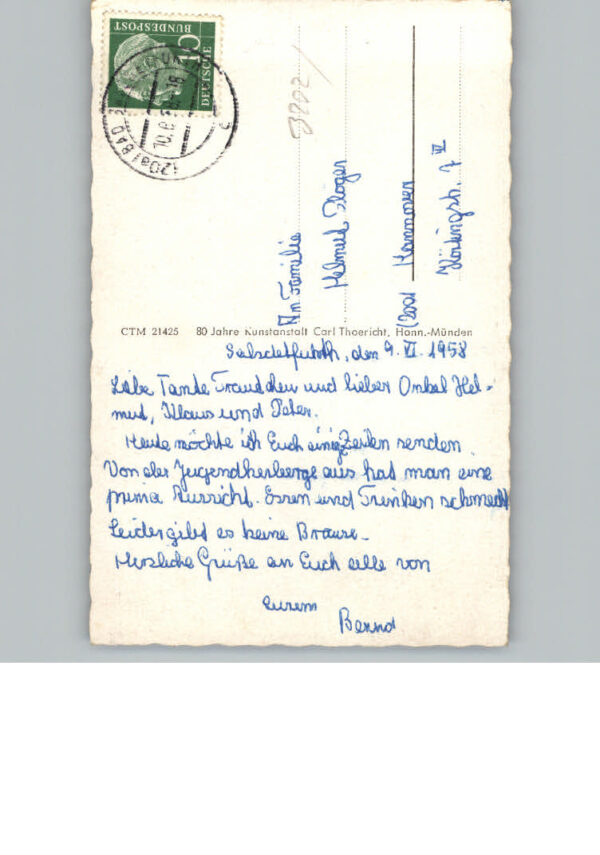 DEUTSCHE
BUNDESPOST
10
(20a) BAD
10.6.
c
3202/
An Familie
Helmut Ploger
(20a) Hannover
Körtingstr. 7 VI
CTM 21425 80 Jahre Kunstanstalt Carl Thoericht, Hann.-Münden
Salsdetfurth, den 9. VI. 1958
Liebe Tante Traudchen und lieber Onkel Hel-
mut, Klaus und Peter.
Heute möchte ich Euch einige Zeilen senden.
Von der Jugendherberge aus hat man eine
prima Aussicht. Essen und Trinken schmeckt
Leider gibt es keine Brause.
Herzliche Grüße an Euch alle von
eurem
Bernd